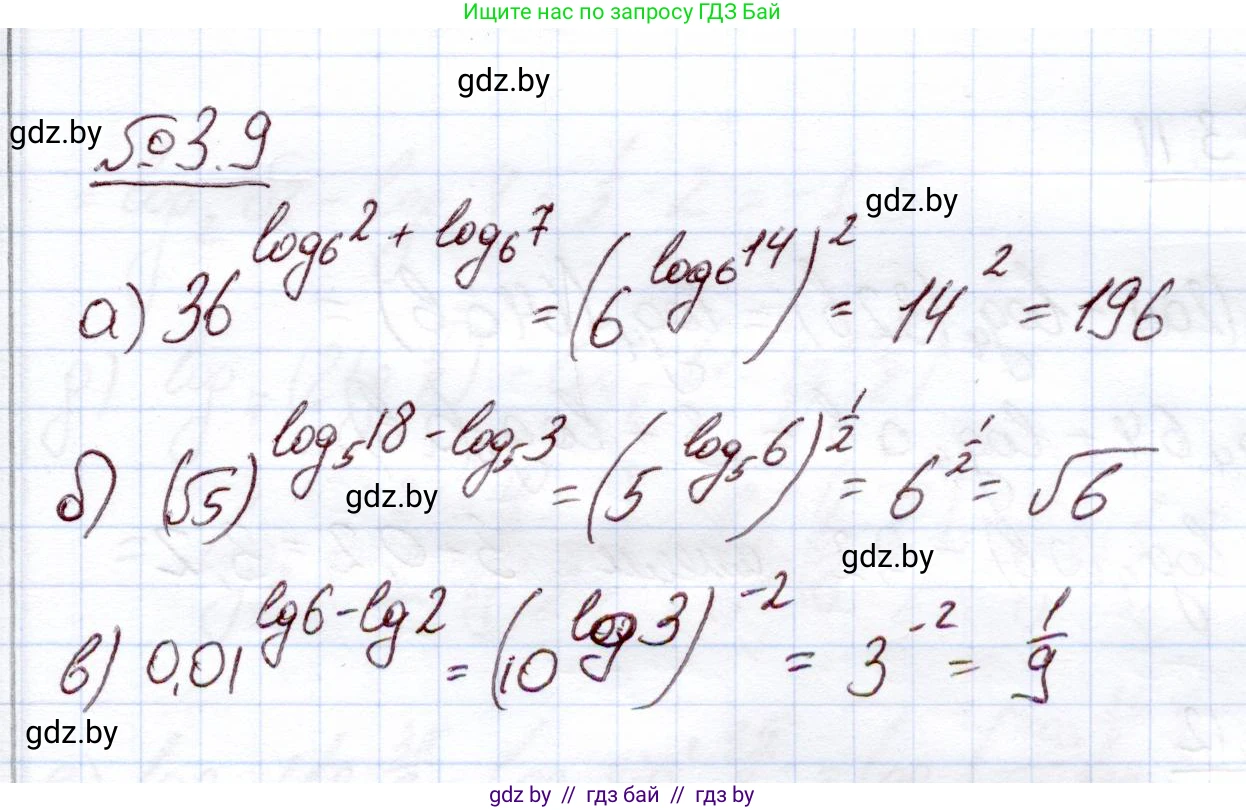 Ищите нас по запросу ГДЗ Бай
gdz.by
gdz.by
№3.9
gdz.by
а) 36^(log₆2 + log₆7) = (6^(log₆14))² = 14² = 196
б) (√5)^(log₅18 - log₅3) = (5^(log₅6))^(1/2) = 6^(1/2) = √6
gdz.by
gdz.by
в) 0,01^(lg6 - lg2) = (10^(log3))^(-2) = 3^(-2) = 1/9
gdz.by
gdz.by // гдз бай // гдз by